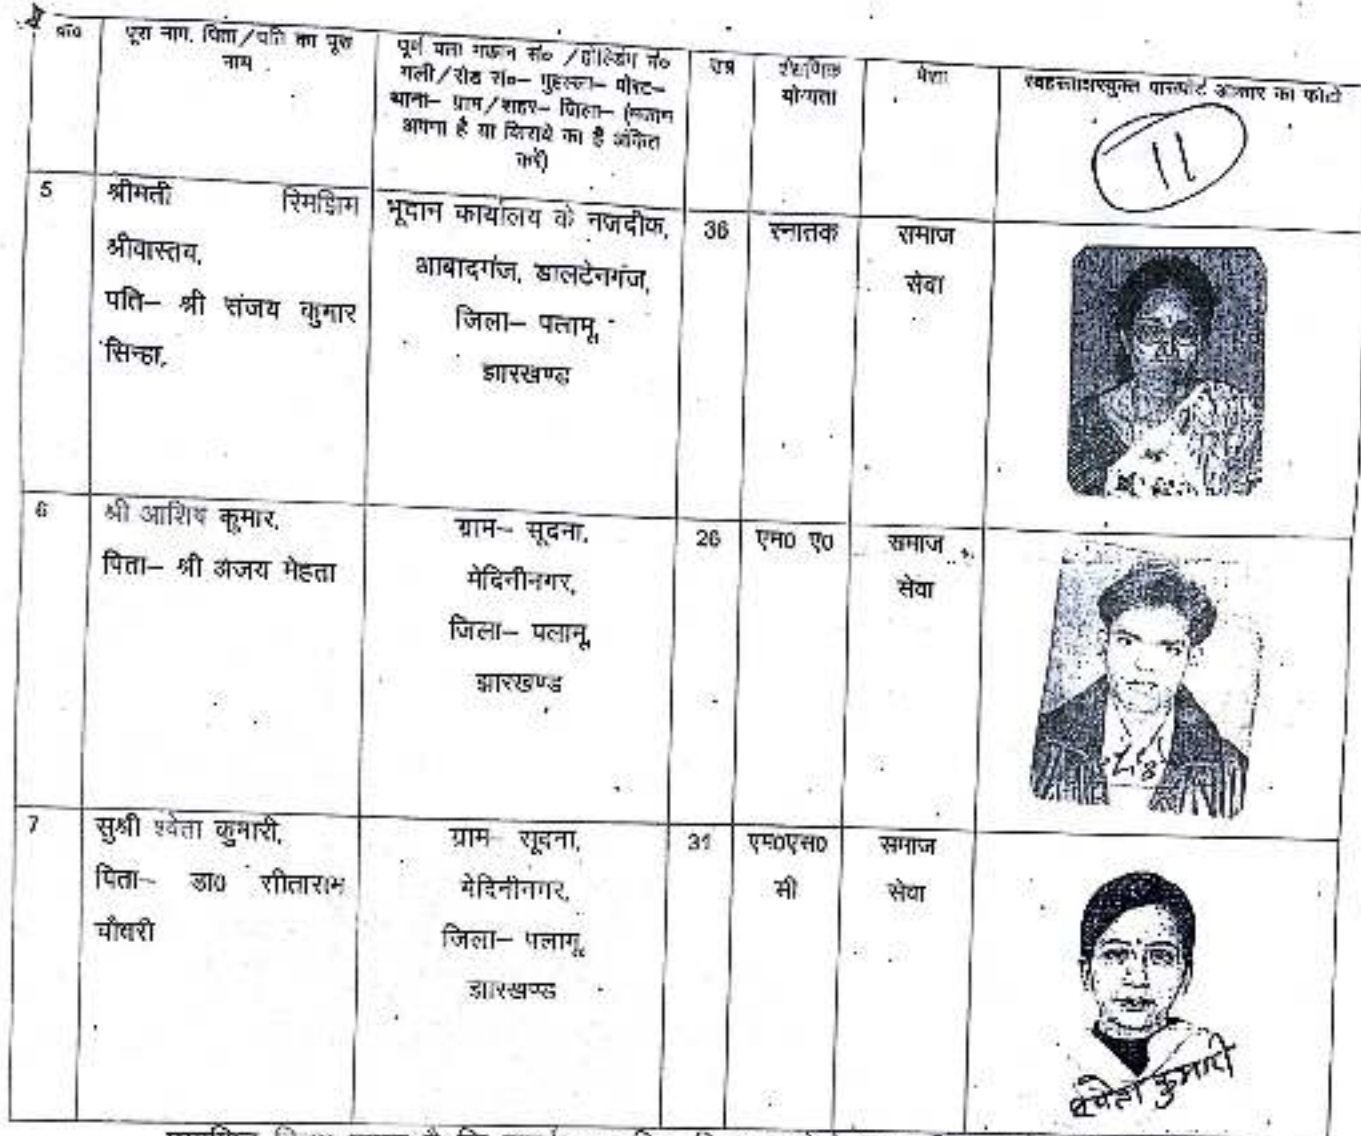 क्र०
पूरा नाम, पिता/पति का पूरा
नाम
पूर्ण पता मकान सं० /होल्डिंग नं०
गली/रोड सं०– मुहल्ला– पोस्ट–
थाना– ग्राम/शहर– जिला– (मकान
अपना है या किराये का है अंकित
करें)
उम्र
शैक्षणिक
योग्यता
पेशा
स्वहस्ताक्षरयुक्त पासपोर्ट आकार का फोटो
11
5
श्रीमती रिमझिम
श्रीवास्तव,
पति– श्री संजय कुमार
सिन्हा,
भूदान कार्यालय के नजदीक,
आबादगंज, डालटेनगंज,
जिला– पलामू,
झारखण्ड
36
स्नातक
समाज
सेवा
6
श्री आशिष कुमार,
पिता– श्री अजय मेहता
ग्राम– सूदना,
मेदिनीनगर,
जिला– पलामू,
झारखण्ड
26
एम0 ए0
समाज
सेवा
7
सुश्री श्वेता कुमारी,
पिता– डा0 सीताराम
चौधरी
ग्राम– सूदना,
मेदिनीनगर,
जिला– पलामू,
झारखण्ड
31
एम0एस0
सी
समाज
सेवा
श्वेता कुमारी